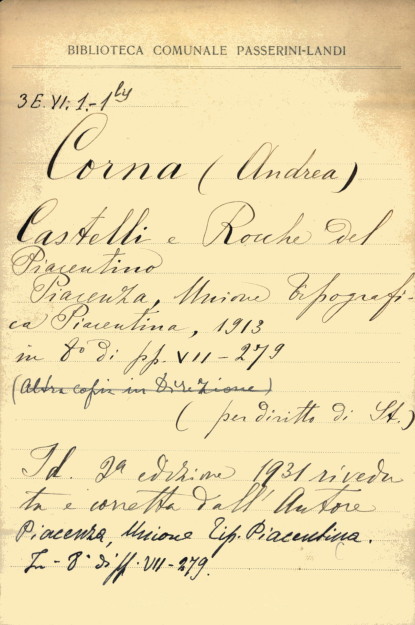 BIBLIOTECA COMUNALE PASSERINI-LANDI
3E.VI.1.-1 bis
Corna (Andrea)
Castelli e Rocche del
Piacentino
Piacenza, Unione Tipografi-
ca Piacentina, 1913
in 8° di pp. VII - 279
(Altra copia in Direzione)
(per diritto di St.)
Id. 2ª edizione 1931 rivedu
ta e corretta dall'Autore
Piacenza, Unione Tip. Piacentina.
In - 8° di pp. VII - 279.